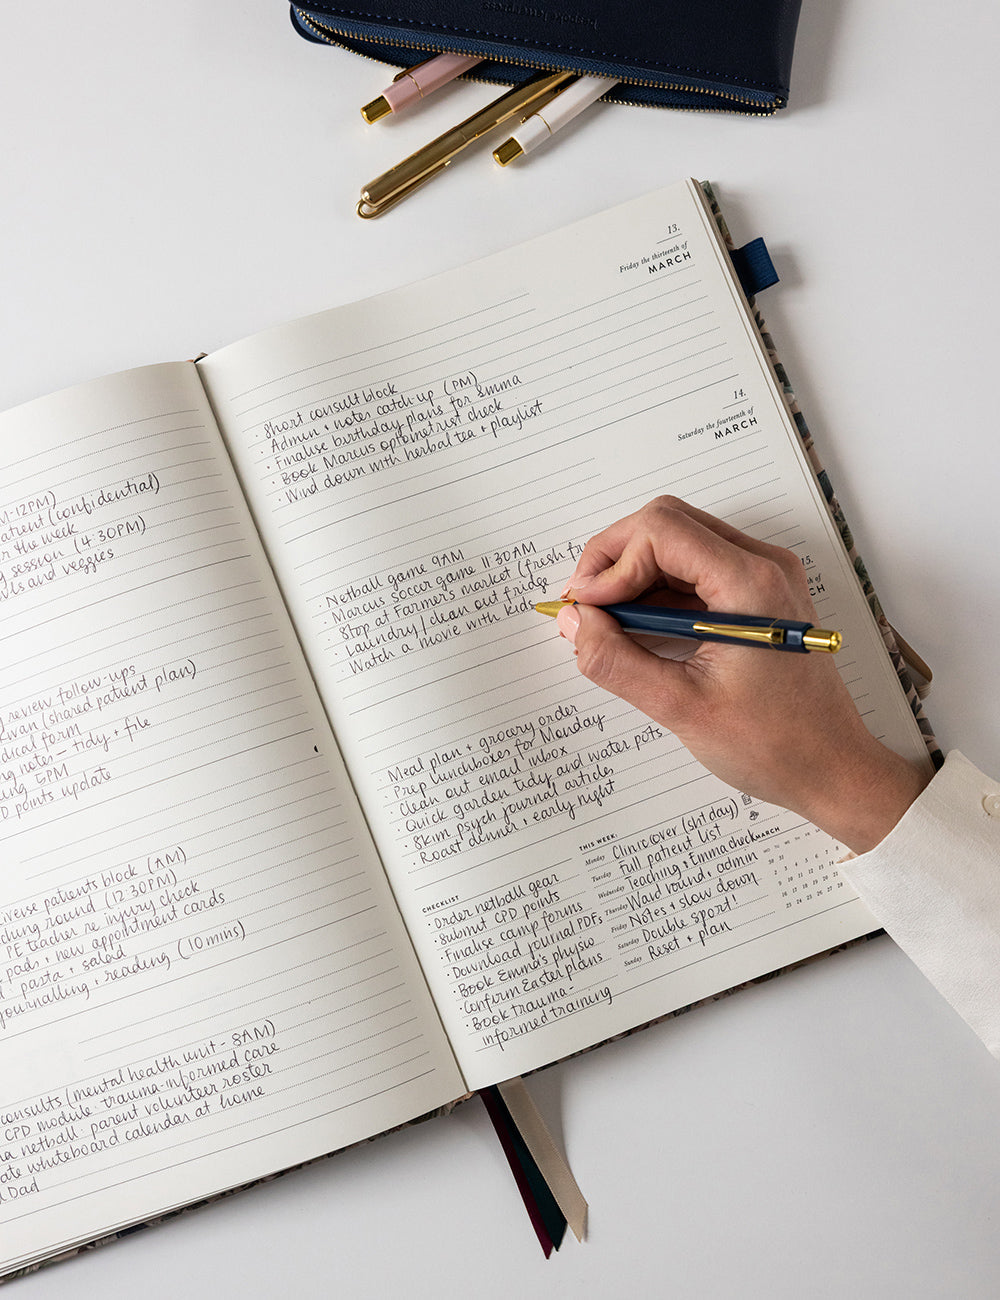 13.
Friday the thirteenth of
MARCH
· Short consult block
· Admin + notes catch up (PM)
· Finalise birthday plans for Emma
· Book Marcus optometrist check
· Wind down with herbal tea + playlist
14.
Saturday the fourteenth of
MARCH
· Netball game 9AM
· Marcus soccer game 11 30AM
· Stop at Farmer's market (fresh
· Laundry / clean out fridge
· Watch a movie with kids
15.
of
· Meal plan + grocery order
· Prep lunchboxes for Monday
· Clean out email inbox
· Quick garden tidy and water pots
· Skim psych journal articles
· Roast dinner + early night
CHECKLIST
· Order netball gear
· Submit CPD points
· Finalise camp forms
· Download journal PDFs
· Book Emma's physio
· Confirm Easter plans
· Book trauma-
informed training
THIS WEEK:
Monday Clinic cover (shf day)
Tuesday Full patient list
Wednesday Teaching + Emma check
Thursday Ward round + admin
Friday Notes + slow down
Saturday Double sport!
Sunday Reset + plan
MARCH
-12PM)
(confidential)
the week
session (4:30PM)
and veggies
review follow-ups
(shared patient plan)
form
notes - tidy + file
5PM
points update
patients block (AM)
round (12:30PM)
PE teacher re injury check
pads + new appointment cards
pasta + salad
journalling + reading (10 mins)
consults (mental health unit - 8AM)
CPD module: trauma-informed care
netball: parent volunteer roster
whiteboard calendar at home
Dad